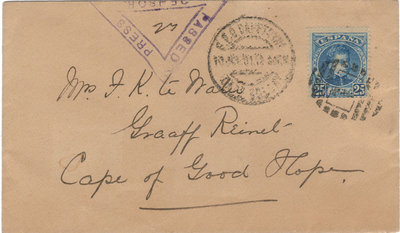 PASSED
PRESS
ESPAÑA
25 25
Mrs. F. K. te Water
Graaff Reinet
Cape of Good Hope.